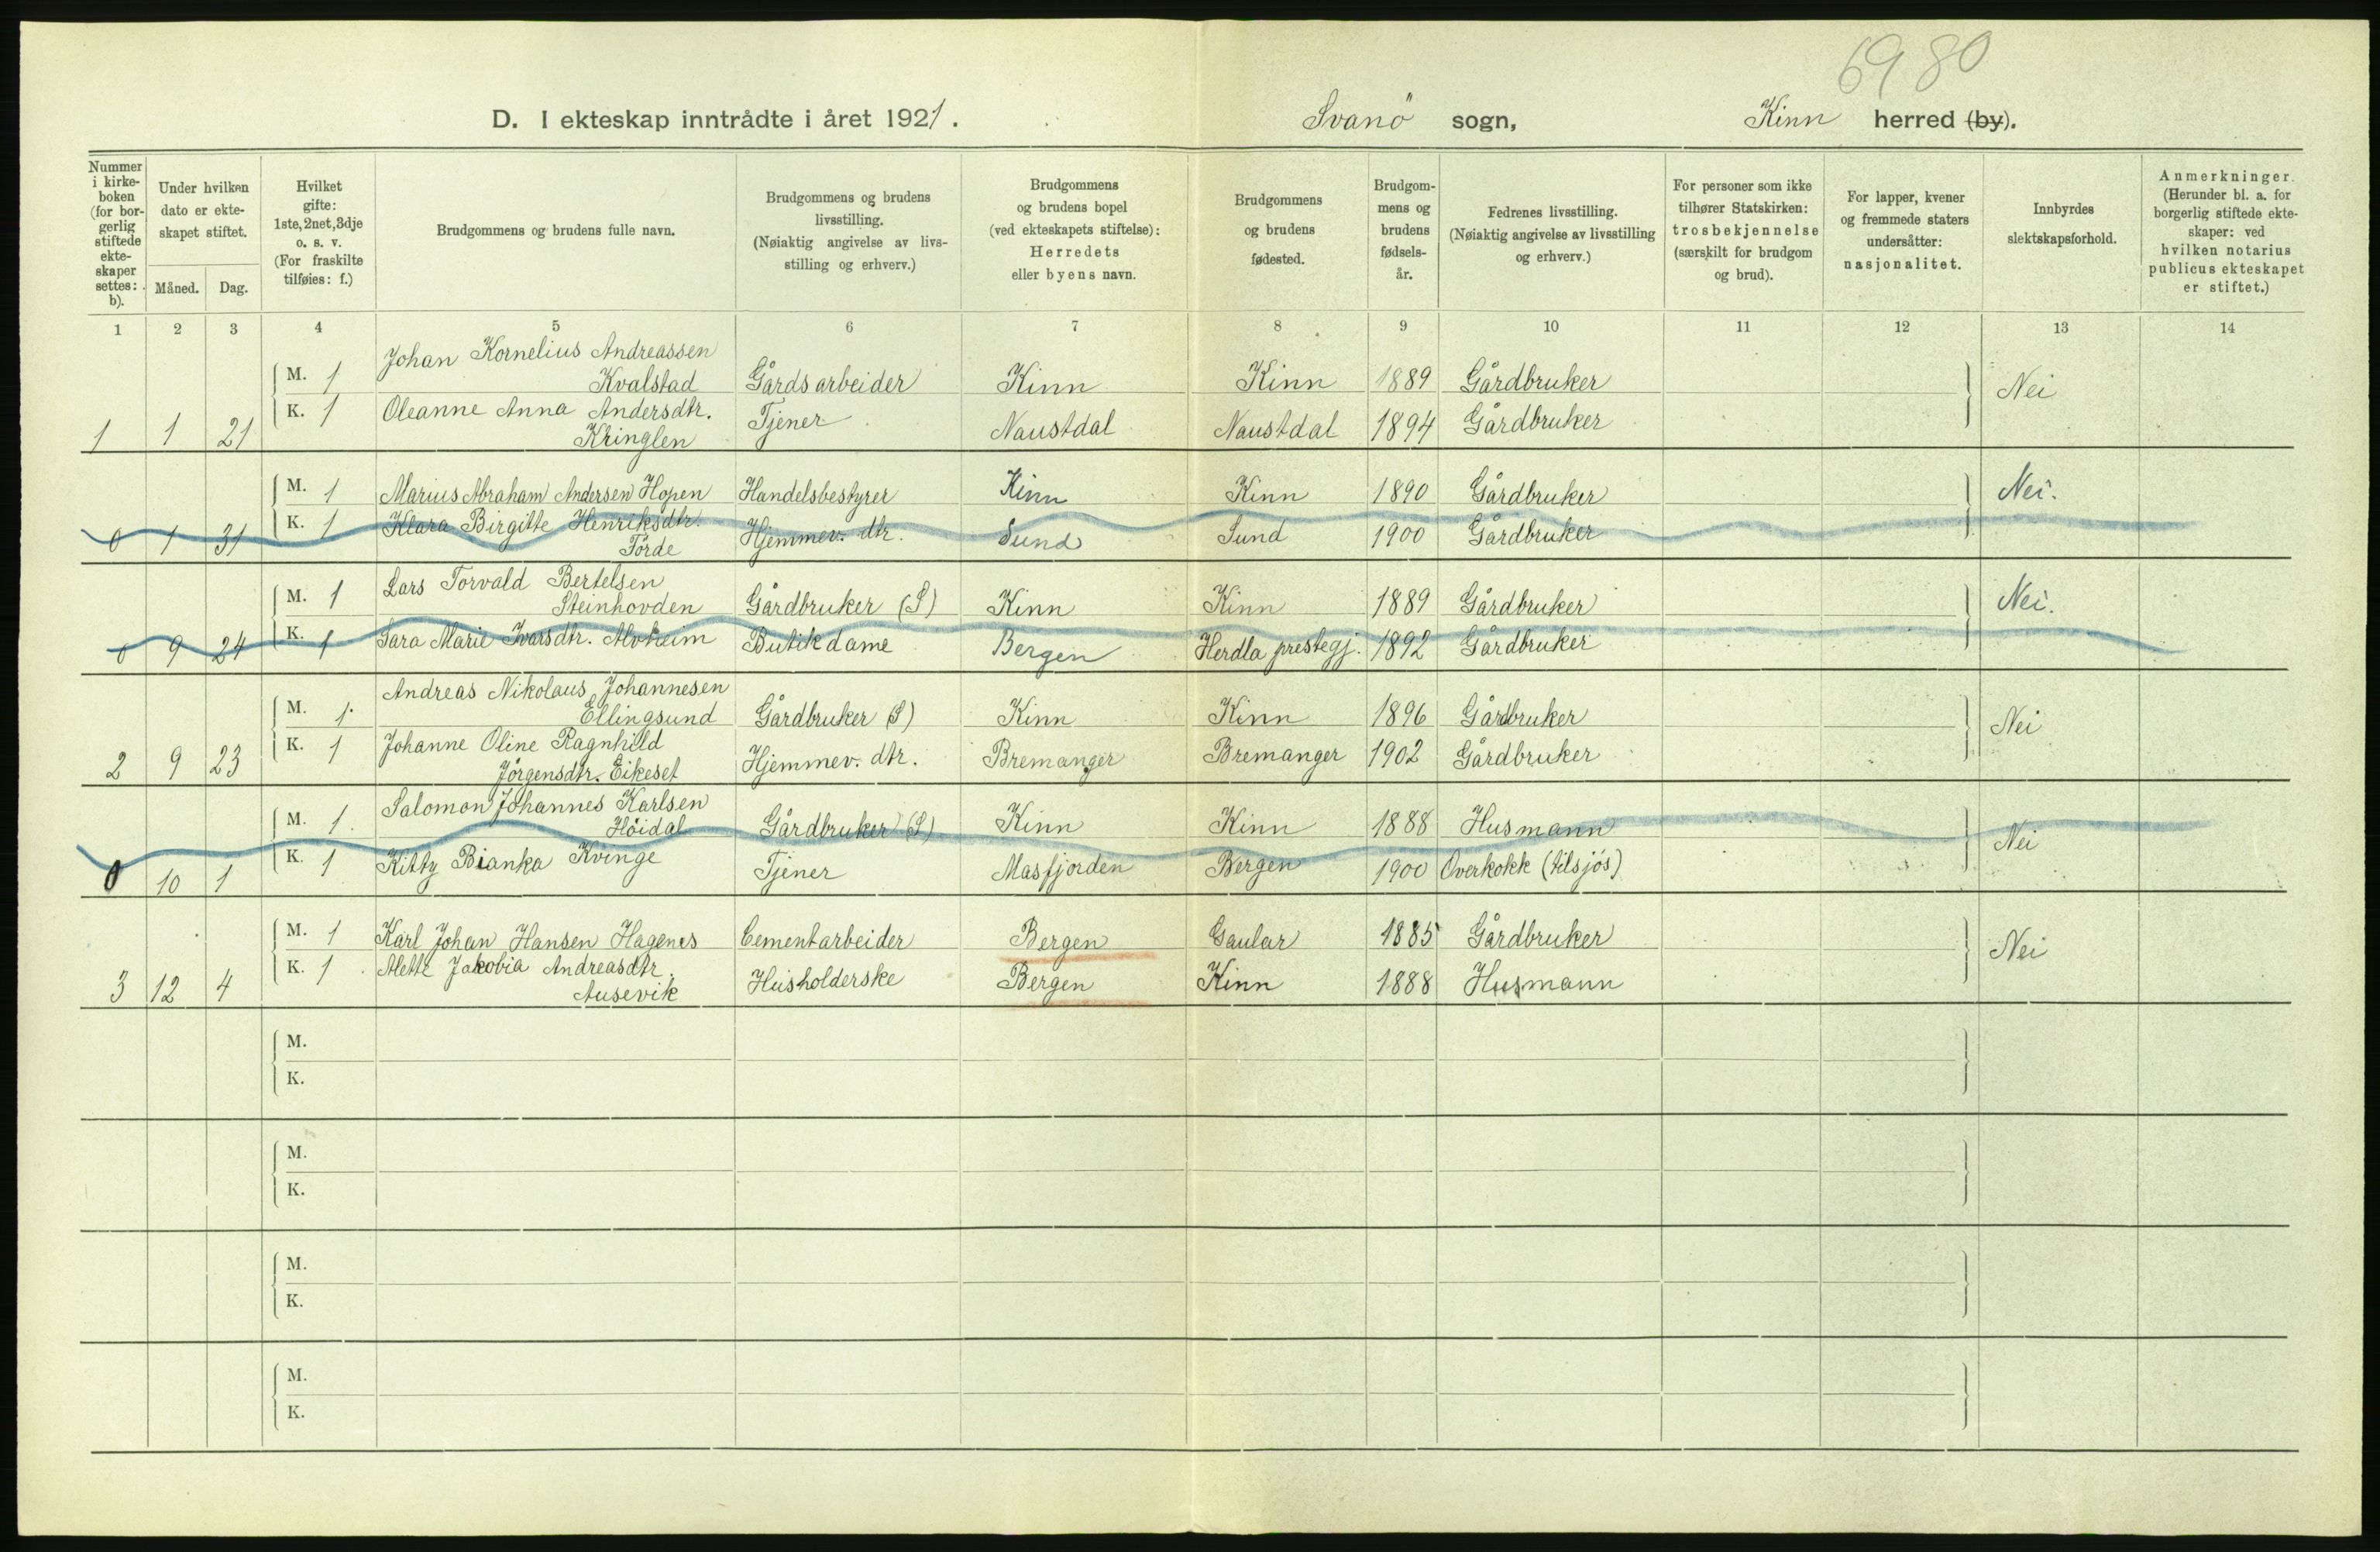 6980
D. I ekteskap inntrådte i året 1921. Svanö sogn, Kinn herred (by).
Nummer i kirkeboken (for borgerlig stiftede ekteskaper settes: b).
Under hvilken dato er ekteskapet stiftet.
Måned. Dag.
Hvilket gifte: 1ste, 2net, 3dje o. s. v. (For fraskilte tilføies: f.)
Brudgommens og brudens fulle navn.
Brudgommens og brudens livsstilling. (Nøiaktig angivelse av livsstilling og erhverv.)
Brudgommens og brudens bopel (ved ekteskapets stiftelse): Herredets eller byens navn.
Brudgommens og brudens fødested.
Brudgommens og brudens fødselsår.
Fedrenes livsstilling. (Nøiaktig angivelse av livsstilling og erhverv.)
For personer som ikke tilhører Statskirken: trosbekjennelse (særskilt for brudgom og brud).
For lapper, kvener og fremmede staters undersåtter: nasjonalitet.
Innbyrdes slektskapsforhold.
Anmerkninger. (Herunder bl. a. for borgerlig stiftede ekteskaper: ved hvilken notarius publicus ekteskapet er stiftet.)
1 2 3 4 5 6 7 8 9 10 11 12 13 14
Johan Kornelius Andreassen
M. 1 Kvalstad Gårdsarbeider Kinn Kinn 1889 Gårdbruker Nei
K. 1 Oleanne Anna Andersdtr. Tjener Naustdal Naustdal 1894 Gårdbruker
1 1 21 Kringlen
M. 1 Marius Abraham Andersen Hopen Handelsbestyrer Kinn Kinn 1890 Gårdbruker Nei.
K. 1 Klara Birgitte Henriksdtr. Hjemmev. dtr. Sund Sund 1900 Gårdbruker
0 1 31 Förde
M. 1 Lars Torvald Bertelsen
Steinhovden Gårdbruker (S) Kinn Kinn 1889 Gårdbruker Nei.
0 9 24 K. 1 Sara Marie Ivarsdtr. Alvheim Butikdame Bergen Herdla prestegj. 1892 Gårdbruker
Andreas Nikolaus Johannesen
M. 1. Ellingsund Gårdbruker (S) Kinn Kinn 1896 Gårdbruker Nei
K. 1 Johanne Oline Ragnhild Hjemmev. dtr. Bremanger Bremanger 1902 Gårdbruker
2 9 23 Jörgensdtr. Eikeset
Salomon Johannes Karlsen
M. 1. Höidal Gårdbruker (S) Kinn Kinn 1888 Husmann Nei
K. 1 Kitty Bianka Kvinge Tjener Masfjorden Bergen 1900 Overkokk (tilsjós)
0 10 1
M. 1 Karl Johan Hansen Hagenes Cementarbeider Bergen Gaular 1885 Gårdbruker Nei
K. 1. Alette Jakobia Andreasdtr. Husholderske Bergen Kinn 1888 Husmann
3 12 4 Ausevik
M.
K.
M.
K.
M.
K.
M.
K.